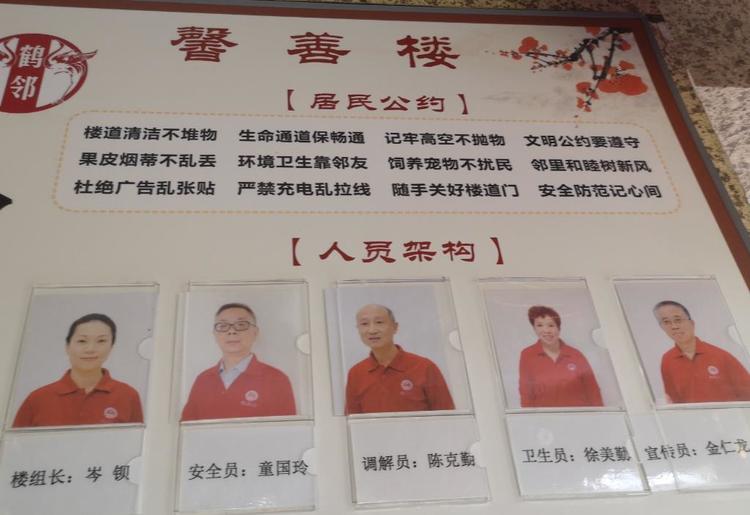 鹤邻
馨善楼
【居民公约】
楼道清洁不堆物 生命通道保畅通 记牢高空不抛物 文明公约要遵守
果皮烟蒂不乱丢 环境卫生靠邻友 饲养宠物不扰民 邻里和睦树新风
杜绝广告乱张贴 严禁充电乱拉线 随手关好楼道门 安全防范记心间
【人员架构】
楼组长：岑 钡 安全员：童国玲 调解员：陈克勤 卫生员：徐美勤 宣传员：金仁龙